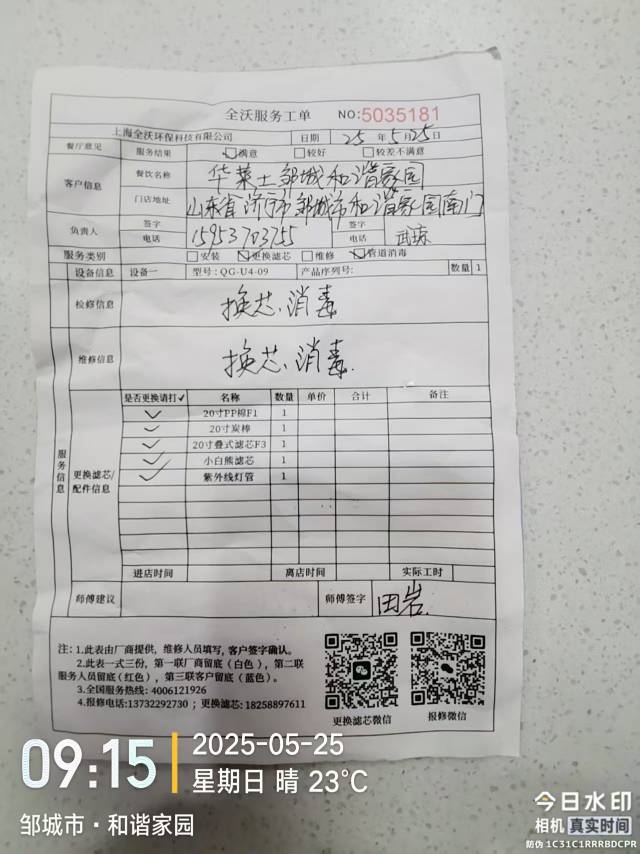 全沃服务工单 NO:5035181
上海全沃环保科技有限公司 日期 25 年 5 月 25 日
餐厅意见 服务结果 ☑满意 □较好 □较差不满意
客户信息 餐饮名称 华莱士邹城和谐家园
门店地址 山东省济宁市邹城市和谐家园南门
负责人 签字 签字
电话 15953703755 电话 武琼
服务类别 □安装 ☑更换滤芯 □维修 ☑管道消毒
设备信息 设备一 型号:QG-U4-09 产品序列号: 数量 1
检修信息 换芯、消毒
维修信息 换芯、消毒.
服务信息
更换滤芯/配件信息
是否更换请打✓ 名称 数量 单价 合计 备注
✓ 20寸PP棉F1 1
✓ 20寸炭棒 1
✓ 20寸叠式滤芯F3 1
✓ 小白熊滤芯 1
✓ 紫外线灯管 1
进店时间 离店时间 实际工时
师傅建议 师傅签字 田岩
注:1.此表由厂商提供,维修人员填写,客户签字确认。
2.此表一式三份,第一联厂商留底(白色),第二联
服务人员留底(红色),第三联客户留底(蓝色)。
3.全国服务热线: 4006121926
4.报修电话:13732292730 ; 更换滤芯: 18258897611
更换滤芯微信 报修微信
09:15 2025-05-25
星期日 晴 23℃
邹城市·和谐家园
今日水印
相机 真实时间
防伪 1C31C1RRRBDCPR